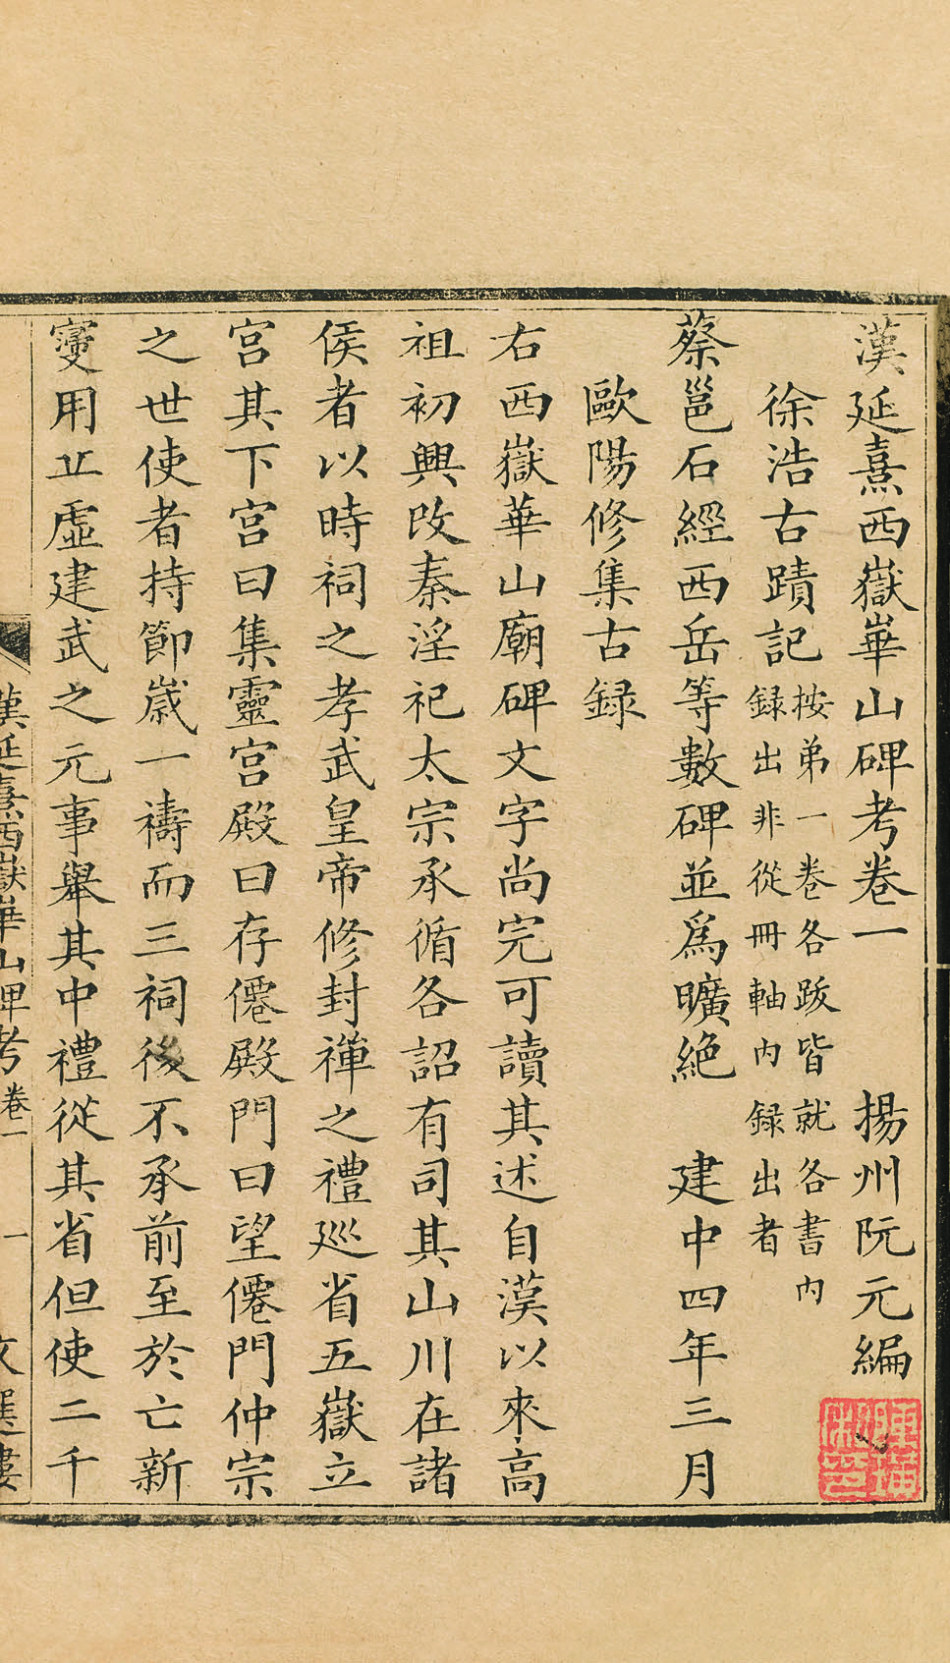 漢延熹西嶽崋山碑考卷一　揚州阮元編
徐浩古蹟記
按弟一卷各跋皆就各書內
録出非從冊軸內録出者
蔡邕石經西岳等數碑並爲曠絶　建中四年三月
歐陽修集古録
右西嶽華山廟碑文字尚完可讀其述自漢以來高
祖初興改秦淫祀太宗承循各詔有司其山川在諸
侯者以時祠之孝武皇帝修封禪之禮巡省五嶽立
宮其下宮曰集靈宮殿曰存僊殿門曰望僊門仲宗
之世使者持節歲一禱而三祠後不承前至於亡新
寖用丘虛建武之元事舉其中禮從其省但使二千
漢延熹西嶽崋山碑考卷一　一　文選樓